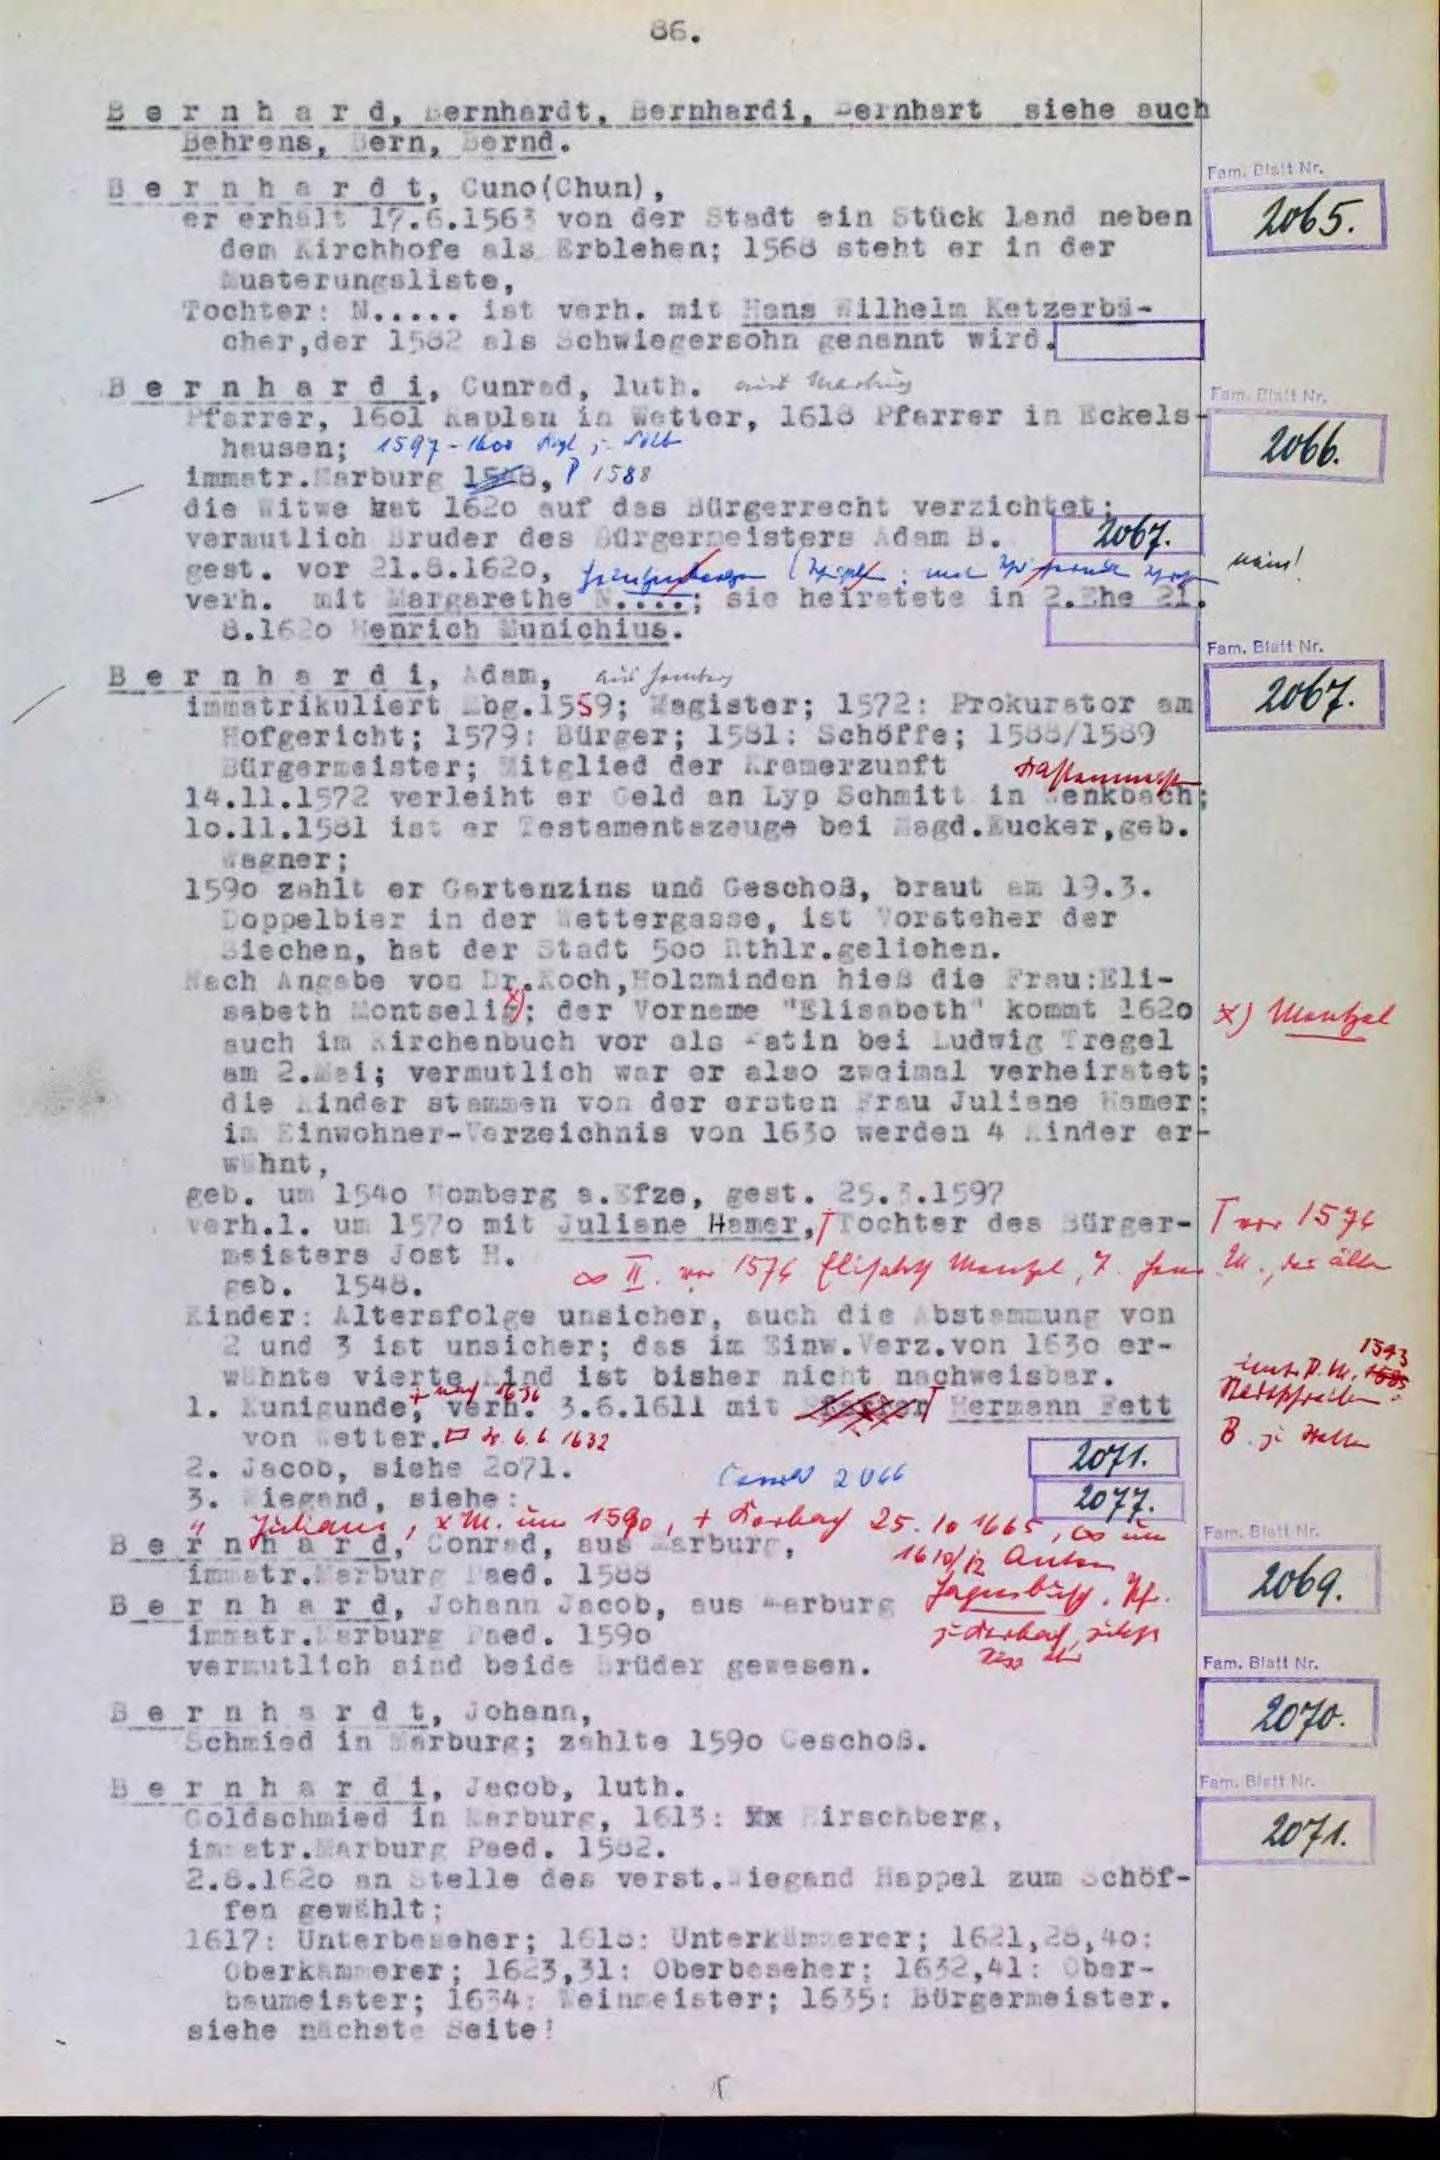 86.
Bernhard, Bernhardt, Bernhardi, Bernhart siehe auch
Behrens, Bern, Bernd.
Bernhardt, Cuno(Chun),
Fam. Blatt Nr.
2065.
er erhält 17.6.1563 von der Stadt ein Stück land neben
dem Kirchhofe als Erblehen; 1568 steht er in der
Musterungsliste,
Tochter: N..... ist verh. mit Hans Wilhelm Ketzerbä-
cher,der 1582 als Schwiegersohn genannt wird.
Bernhardi, Cunrad, luth. aus Marburg
Fam. Blatt Nr.
2066.
Pfarrer, 1601 Kaplan in Wetter, 1618 Pfarrer in Eckels-
hausen; 1597-1600
immatr.Marburg P 1588
die Witwe hat 1620 auf das Bürgerrecht verzichtet;
vermutlich Bruder des Bürgermeisters Adam B. 2067.
gest. vor 21.8.1620, nein!
verh. mit Margarethe N....; sie heiratete in 2.Ehe 21.
8.1620 Henrich Munichius.
Bernhardi, Adam, aus Homberg
Fam. Blatt Nr.
2067.
immatrikuliert Mbg.1559; Magister; 1572: Prokurator am
Hofgericht; 1579: Bürger; 1581: Schöffe; 1588/1589
Bürgermeister; Mitglied der Kramerzunft
14.11.1572 verleiht er Geld an Lyp Schmitt in Wenkbach;
10.11.1581 ist er Testamentszeuge bei Magd.Zucker,geb.
Wagner;
1590 zahlt er Gartenzins und Geschoß, braut am 19.3.
Doppelbier in der Wettergasse, ist Vorsteher der
Siechen, hat der Stadt 500 Rthlr.geliehen.
Nach Angabe von Dr.Koch,Holzminden hieß die Frau:Eli-
sabeth Montselig x); der Vorname "Elisabeth" kommt 1620
x) Mantzel
auch im Kirchenbuch vor als Patin bei Ludwig Tregel
am 2.Mai; vermutlich war er also zweimal verheiratet;
die Kinder stammen von der ersten Frau Juliane Hamer;
im Einwohner-Verzeichnis von 1630 werden 4 Kinder er-
wähnt,
geb. um 1540 Homberg a.Efze, gest. 25.3.1597
verh.1. um 1570 mit Juliane Hamer, Tochter des Bürger-
vor 1574
meisters Jost H.
∞ II. vor 1574 Elisabeth Mantzel, T. Hans M., des älter
geb. 1548.
Kinder: Altersfolge unsicher, auch die Abstammung von
2 und 3 ist unsicher; das im Einw.Verz.von 1630 er-
wähnte vierte Kind ist bisher nicht nachweisbar.
1. Kunigunde, + nach 1636 verh. 3.6.1611 mit Hermann Fett
1593
von Wetter. 6.6.1632
2. Jacob, siehe 2071. 2071.
Conrad 2066
3. Wiegand, siehe: 2077.
4 Juliane, x M. um 1590, + Korbach 25.10 1665, ∞ um
1610/12 Anton
Bernhard, Conrad, aus Marburg,
Fam. Blatt Nr.
2069.
immatr.Marburg Paed. 1588
Bernhard, Johann Jacob, aus Marburg
immatr.Marburg Paed. 1590
vermutlich sind beide Brüder gewesen.
Bernhardt, Johann,
Fam. Blatt Nr.
2070.
Schmied in Marburg; zahlte 1590 Geschoß.
Bernhardi, Jacob, luth.
Fam. Blatt Nr.
2071.
Goldschmied in Marburg, 1613: Hirschberg,
immatr.Marburg Paed. 1582.
2.8.1620 an Stelle des verst.Wiegand Happel zum Schöf-
fen gewählt;
1617: Unterbeseher; 1618: Unterkämmerer; 1621,28,40:
Oberkämmerer; 1623,31: Oberbeseher; 1632,41: Ober-
baumeister; 1634: Weinmeister; 1635: Bürgermeister.
siehe nächste Seite!